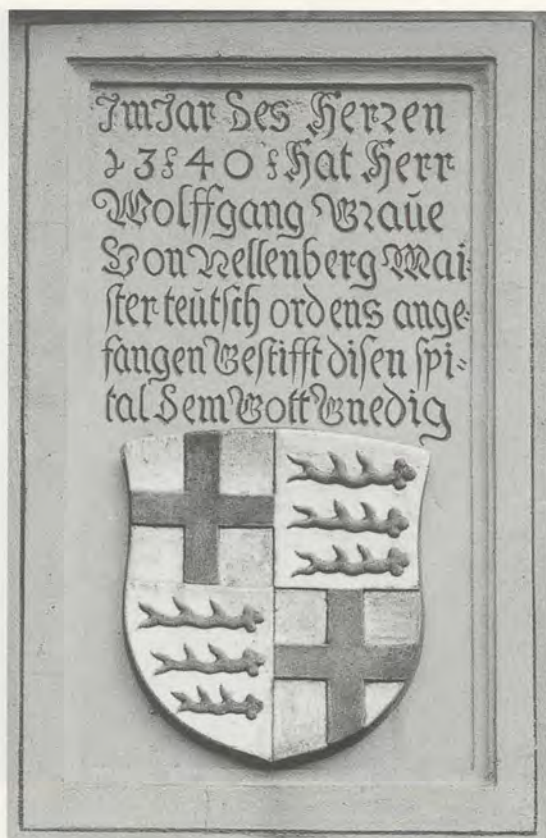 Im Jar des Herren
1340 hat Herr
Wolffgang Graue
Von Nellenberg Mai=
ster teütsch ordens ange=
fangen Gestifft disen spi=
tal Dem Gott Gnedig